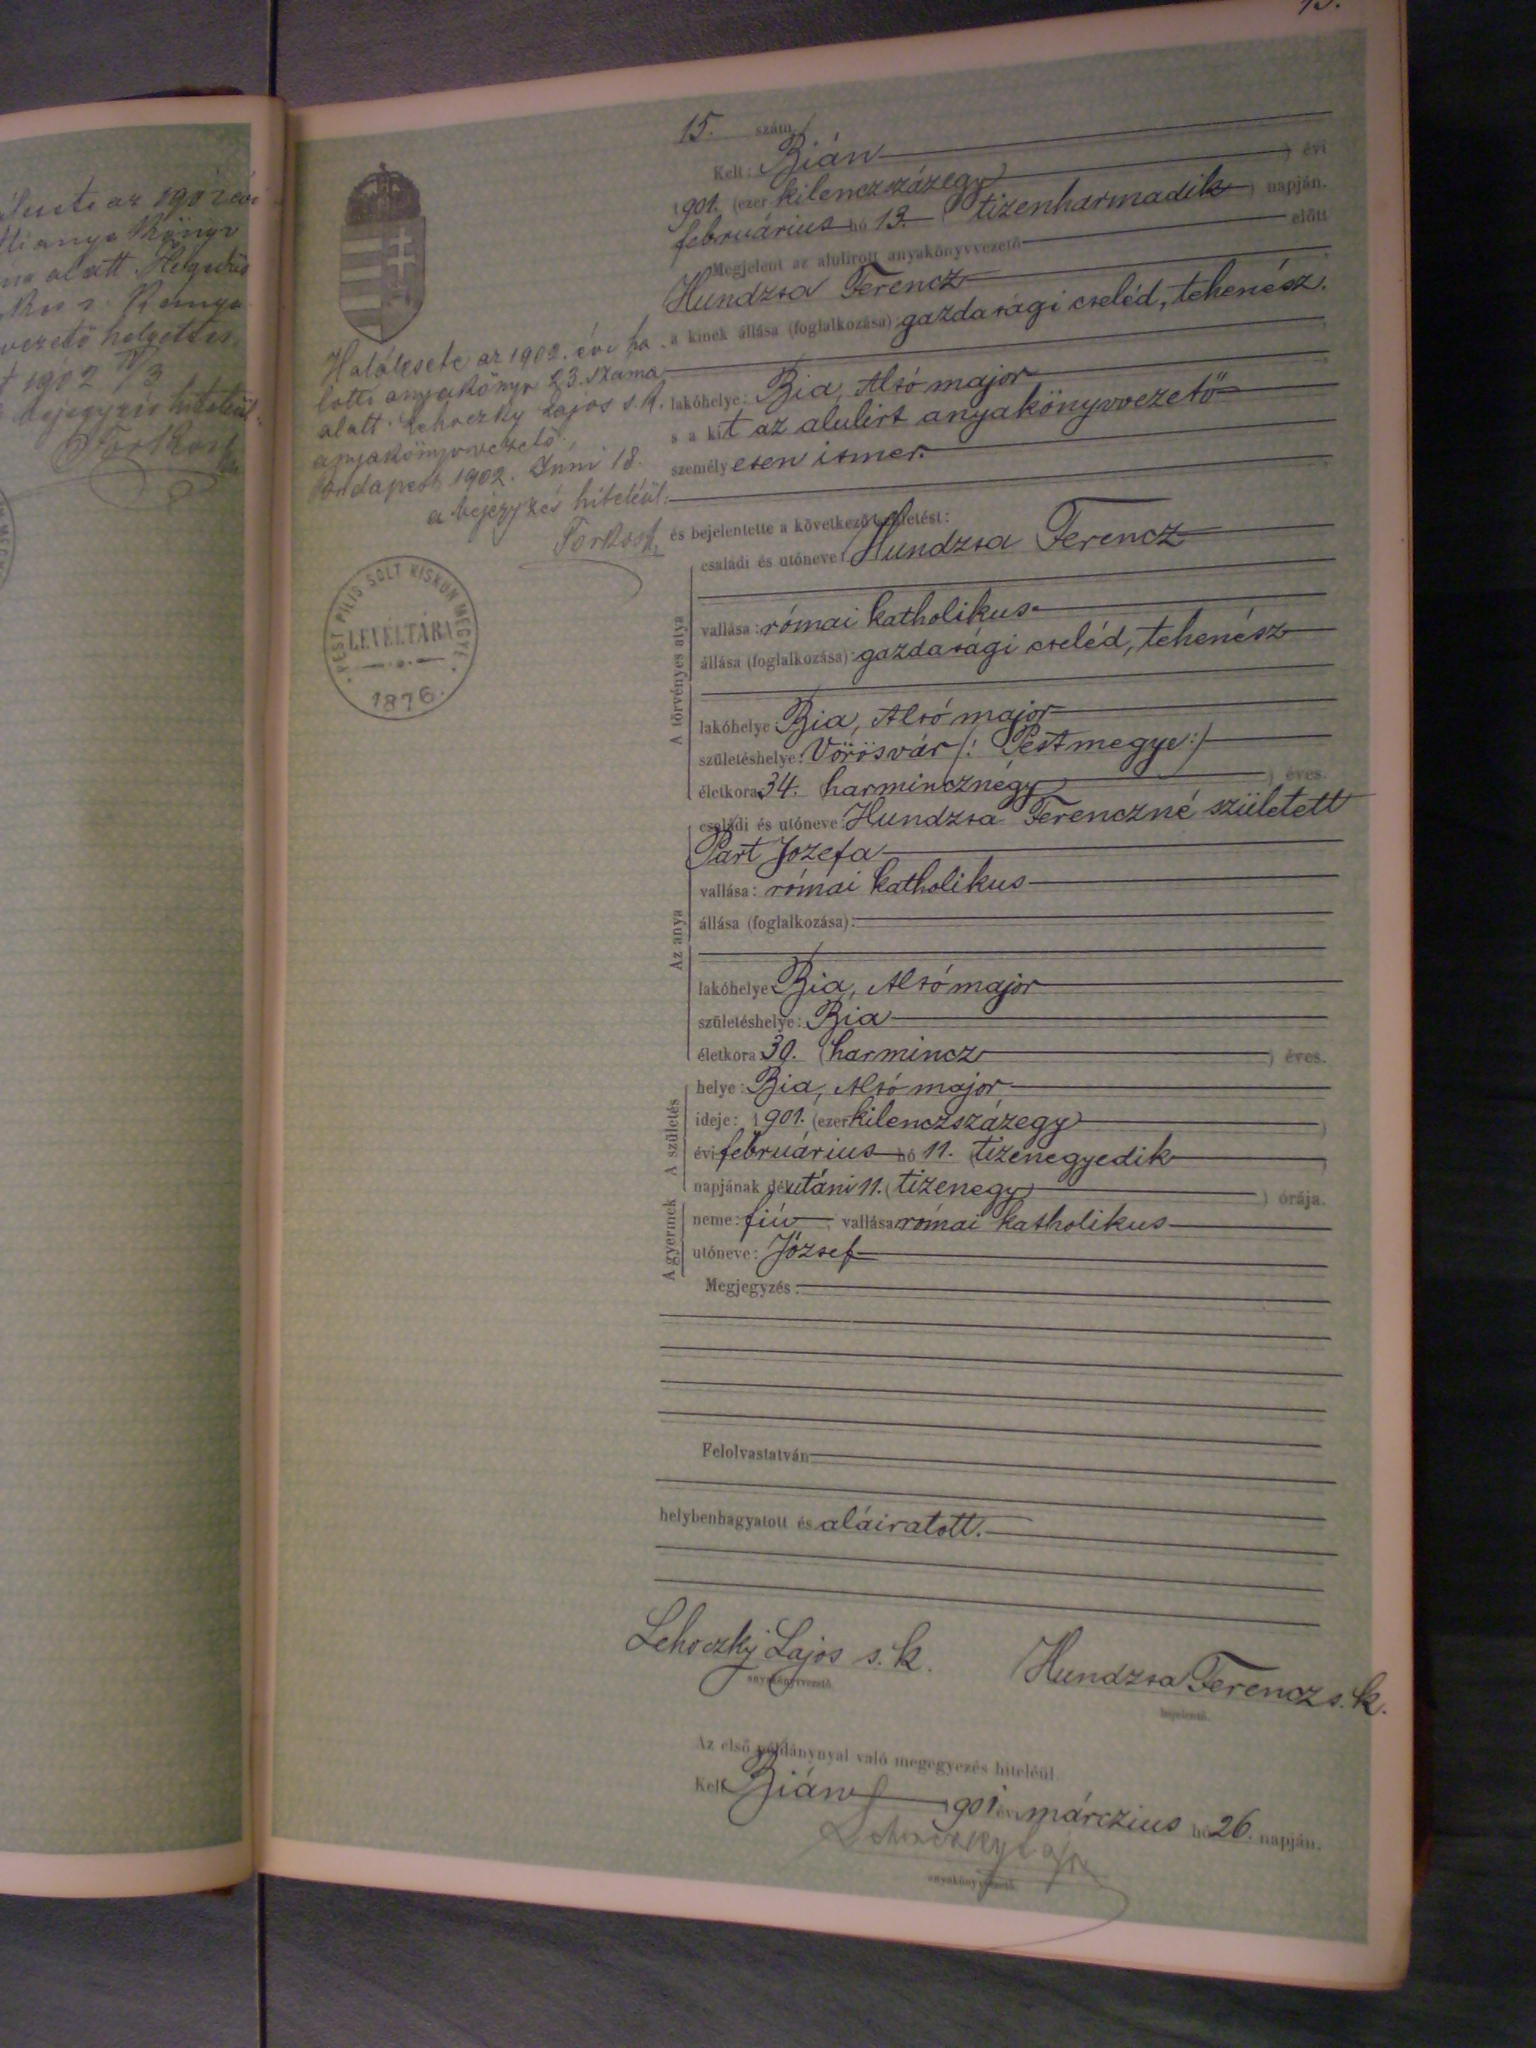 15.
15. szám.
Kelt: Bián
1901. (ezer kilenczszázegy) évi
februárius hó 13. (tizenharmadik) napján.
Megjelent az alulirott anyakönyvvezető előtt
Hundzsa Ferencz
a kinek állása (foglalkozása) gazdasági cseléd, tehenész.
lakóhelye: Bia, Alsó major
s a kit az alulirt anyakönyvvezető
személyesen ismer.
és bejelentette a következő születést:
A törvényes atya
családi és utóneve: Hundzsa Ferencz
vallása: római katholikus
állása (foglalkozása): gazdasági cseléd, tehenész
lakóhelye: Bia, Alsó major
születéshelye: Vörösvár /: Pestmegye :/
életkora: 34. (harmincznégy) éves.
Az anya
családi és utóneve: Hundzsa Ferenczné született
Part Jozefa
vallása: római katholikus
állása (foglalkozása):
lakóhelye: Bia, Alsó major
születéshelye: Bia
életkora: 30. (harmincz) éves.
A születés
helye: Bia, Alsó major
ideje: 1901. (ezer kilenczszázegy)
évi februárius hó 11. (tizenegyedik)
napjának délutáni 11. (tizenegy) órája.
A gyermek
neme: fiú vallása: római katholikus
utóneve: József
Megjegyzés:
Felolvastatván
helybenhagyatott és aláiratott.
Lehoczky Lajos s. k. Hundzsa Ferencz s. k.
anyakönyvvezető bejelentő.
Az első példánynyal való megegyezés hiteléül.
Kelt Bián 1901 évi márczius hó 26. napján.
Lehoczky Lajos
anyakönyvvezető
Halálesete az 1902. évi ha
lotti anyakönyv 23. száma
alatt. Lehoczky Lajos s. k.
anyakönyvvezető.
Budapest 1902. Juni 18.
a bejegyzés hiteléül:
PEST PILIS SOLT KISKUN MEGYE
LEVÉLTÁRA
1876.
az 1902 évi
alatt. Hegedüs
vezető helyettes
1902
bejegyzés hiteléül